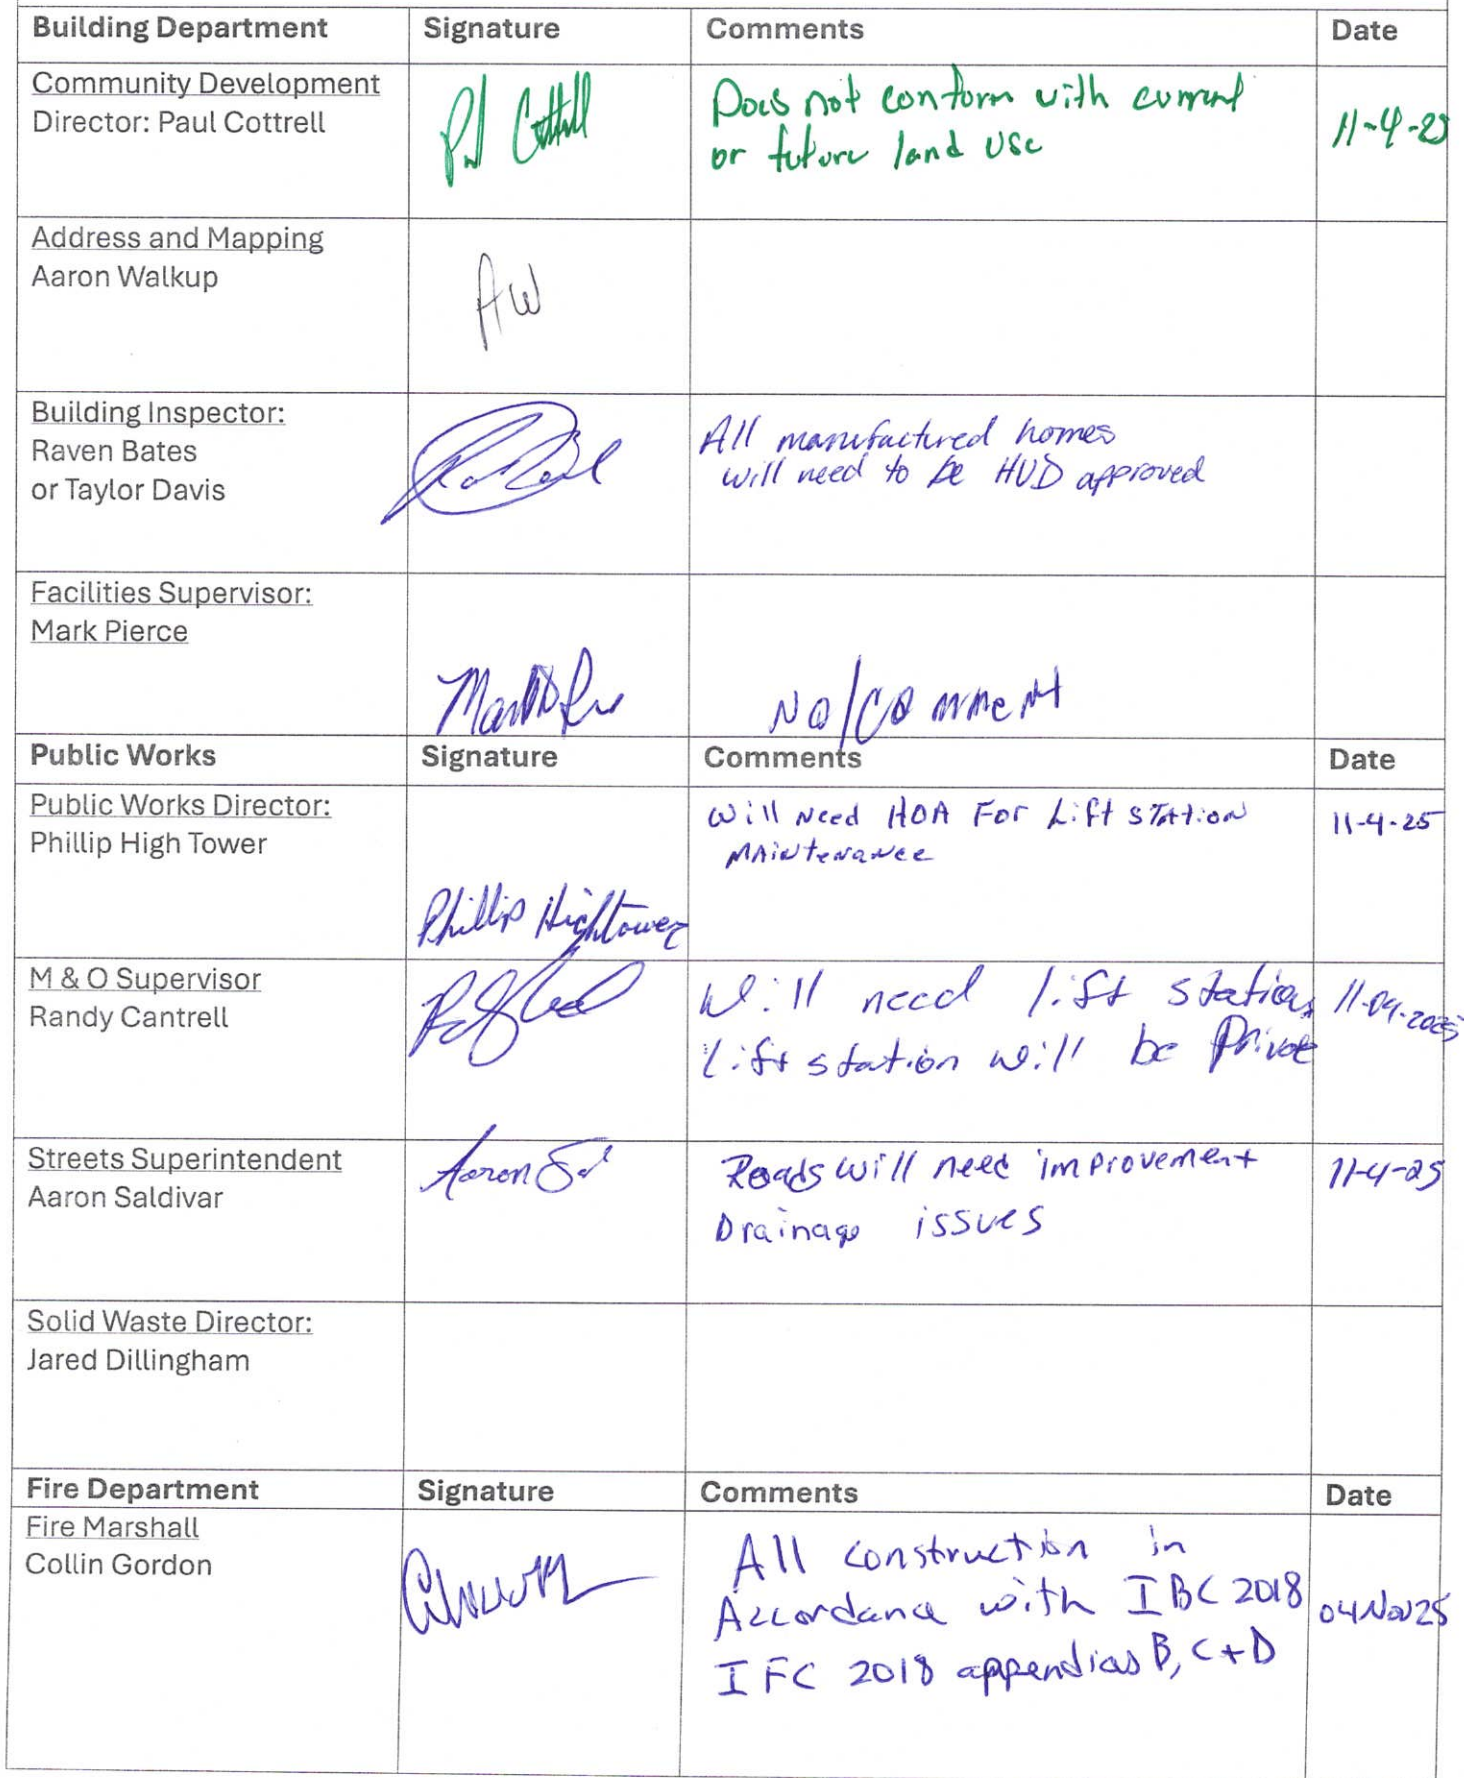 Building Department Signature Comments Date
Community Development
Director: Paul Cottrell
Paul Cottrell
Does not conform with current
or future land use
11-4-25
Address and Mapping
Aaron Walkup
AW
Building Inspector:
Raven Bates
or Taylor Davis
All manufactured homes
will need to be HUD approved
Facilities Supervisor:
Mark Pierce
No/comment
Public Works Signature Comments Date
Public Works Director:
Phillip High Tower
Phillip Hightower
Will Need HOA For Lift STATION
MAINTENANCE
11-4-25
M & O Supervisor
Randy Cantrell
Will need lift station,
Lift station will be Private
11-04-2025
Streets Superintendent
Aaron Saldivar
Aaron Sal
Roads will need improvement
Drainage issues
11-4-25
Solid Waste Director:
Jared Dillingham
Fire Department Signature Comments Date
Fire Marshall
Collin Gordon
All construction in
Accordance with IBC 2018
IFC 2018 appendias B, C + D
04Nov25